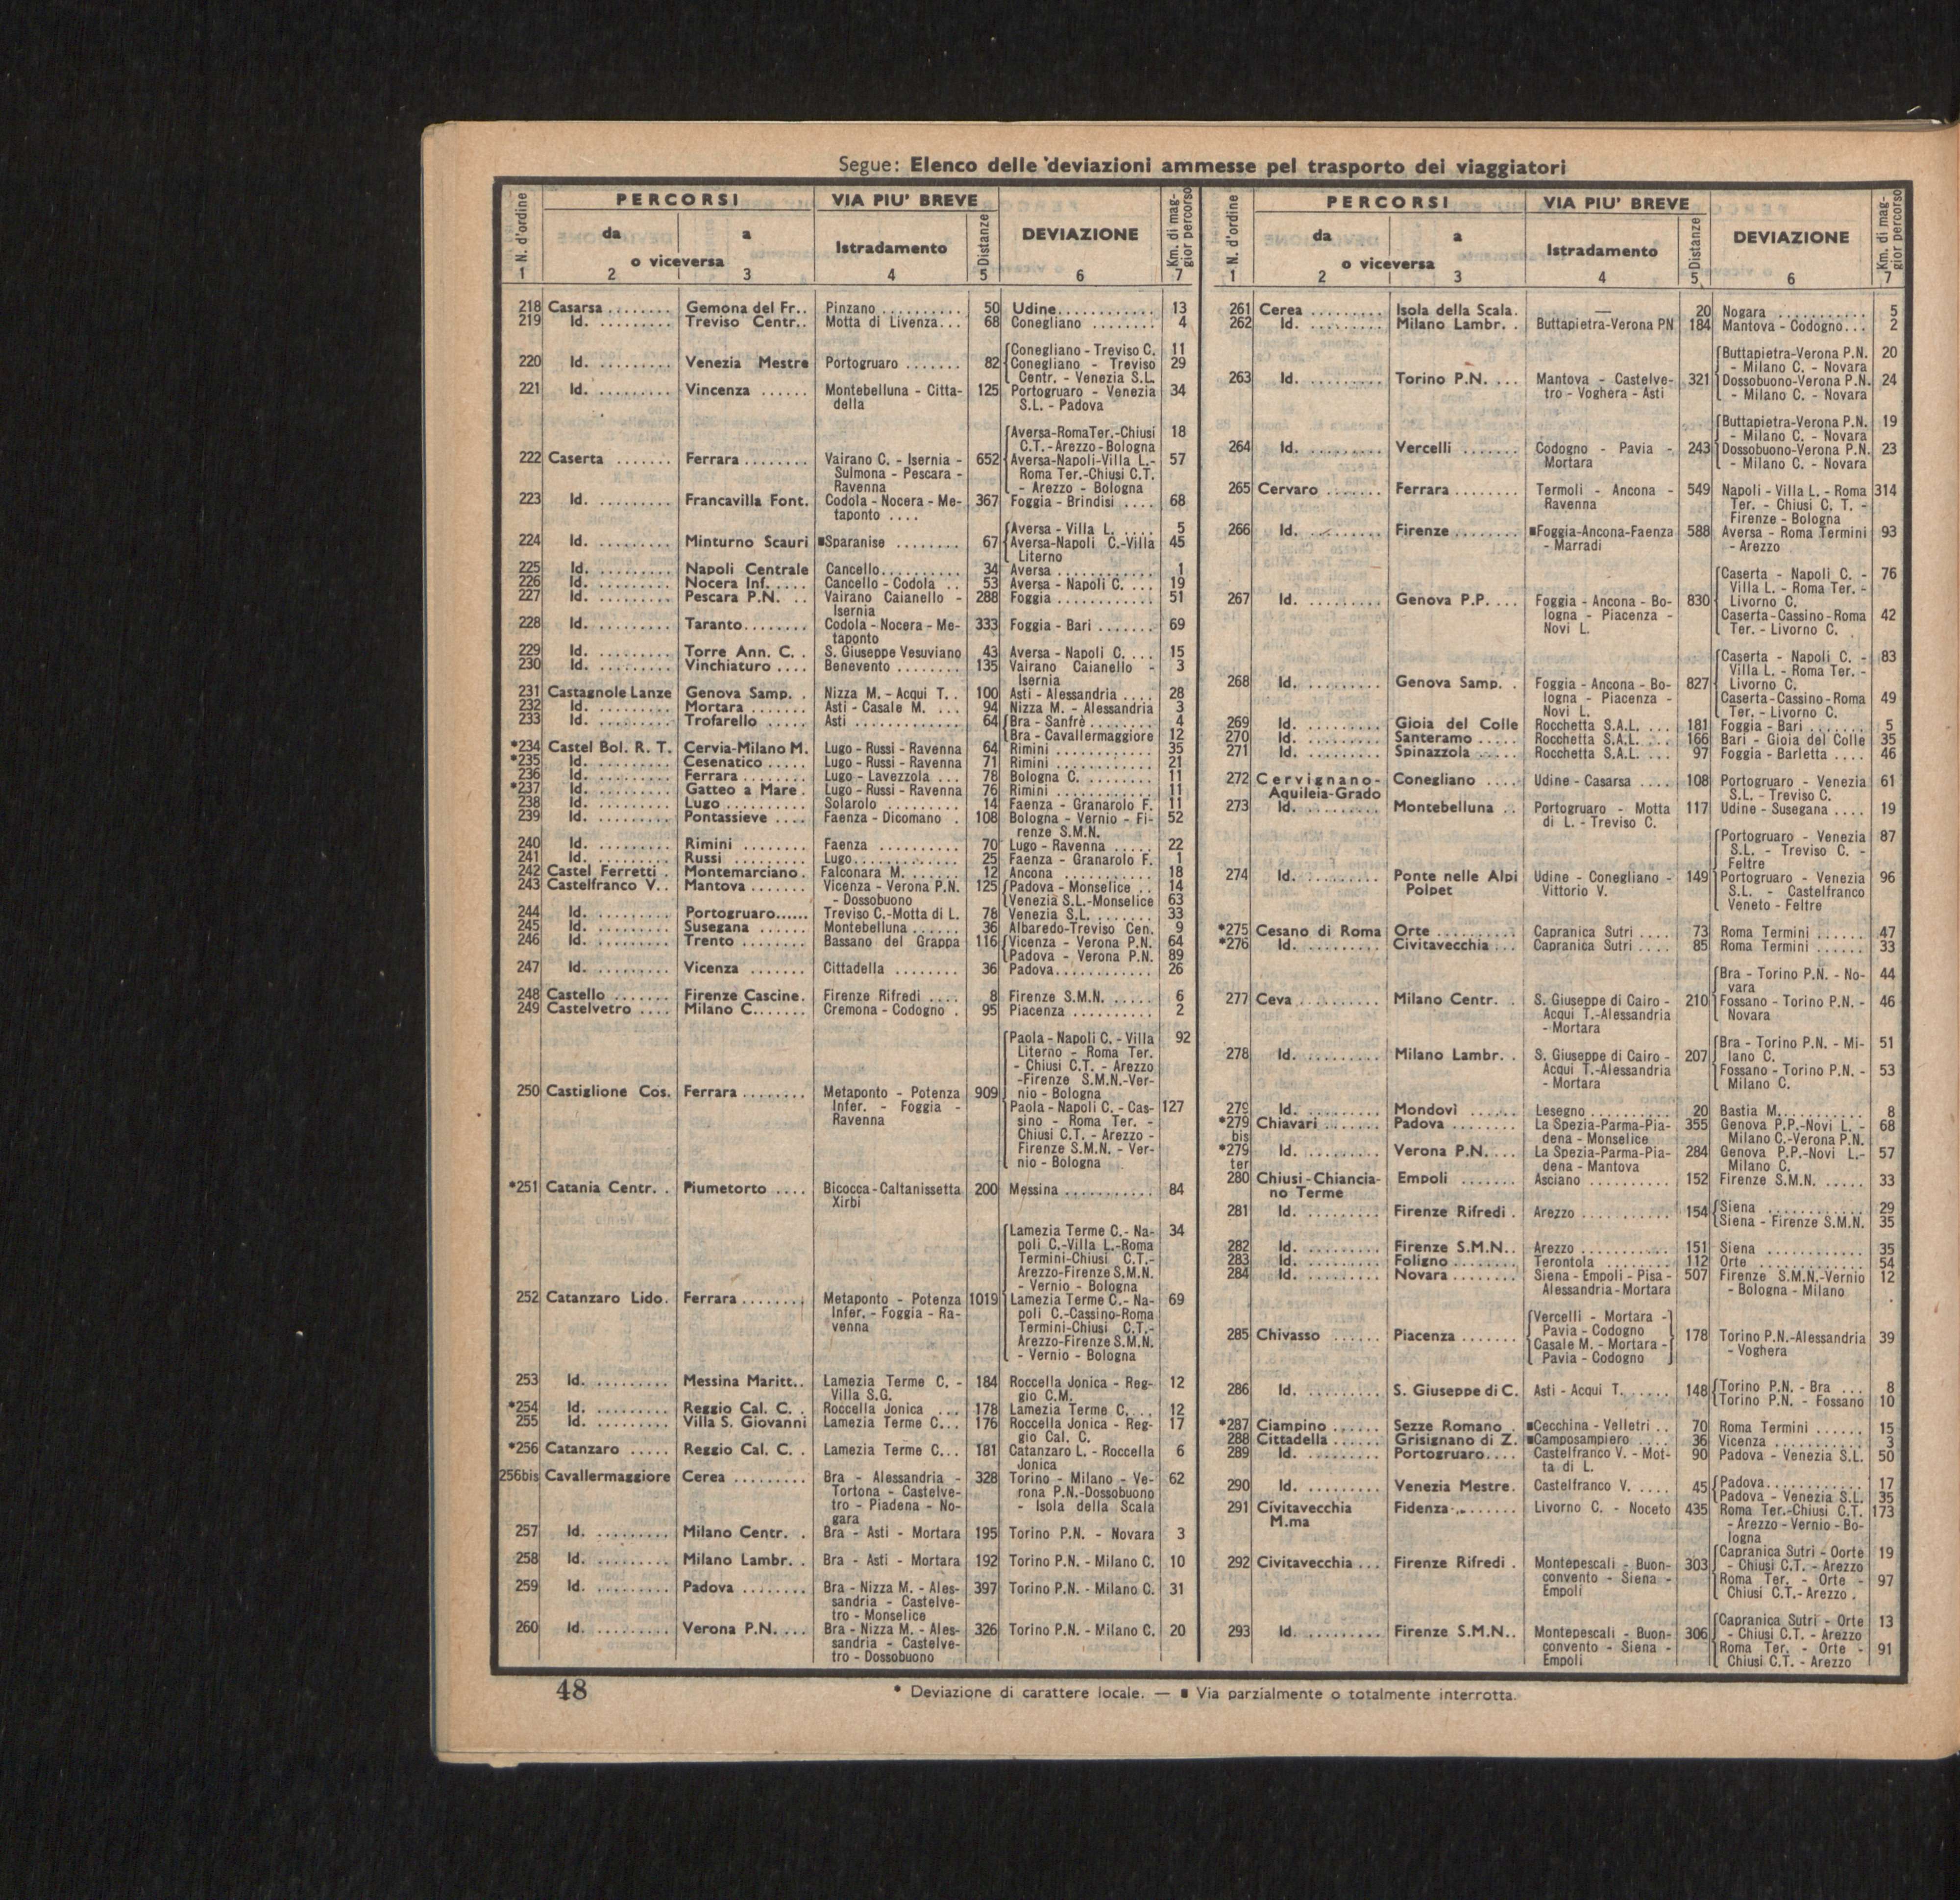 Segue: Elenco delle deviazioni ammesse pel trasporto dei viaggiatori
N. d'ordine PERCORSI VIA PIU' BREVE DEVIAZIONE Km. di maggior percorso
da a Istradamento Distanze
o viceversa
1 2 3 4 5 6 7
218 Casarsa ........ Gemona del Fr.. Pinzano .......... 50 Udine............ 13
219 Id. ......... Treviso Centr.. Motta di Livenza... 68 Conegliano ........ 4
Conegliano - Treviso C. 11
220 Id. ......... Venezia Mestre Portogruaro ....... 82 Conegliano - Treviso 29
Centr. - Venezia S.L.
221 Id. ......... Vincenza ...... Montebelluna - Citta- 125 Portogruaro - Venezia 34
della S.L. - Padova
Aversa-RomaTer.-Chiusi 18
C.T.-Arezzo-Bologna
222 Caserta ....... Ferrara ........ Vairano C. - Isernia - 652 Aversa-Napoli-Villa L.- 57
Sulmona - Pescara - Roma Ter.-Chiusi C.T.
Ravenna - Arezzo - Bologna
223 Id. ......... Francavilla Font. Codola - Nocera - Me- 367 Foggia - Brindisi .... 68
taponto ....
Aversa - Villa L. .... 5
224 Id. ......... Minturno Scauri ■Sparanise ........ 67 Aversa-Napoli C.-Villa 45
Literno
225 Id. ......... Napoli Centrale Cancello.......... 34 Aversa ............ 1
226 Id. ......... Nocera Inf. .... Cancello - Codola .. 53 Aversa - Napoli C. ... 19
227 Id. ......... Pescara P.N. .. Vairano Caianello - 288 Foggia ............ 51
Isernia
228 Id. ......... Taranto........ Codola - Nocera - Me- 333 Foggia - Bari ....... 69
taponto
229 Id. ......... Torre Ann. C. . S. Giuseppe Vesuviano 43 Aversa - Napoli C. ... 15
230 Id. ......... Vinchiaturo .... Benevento ........ 135 Vairano Caianello - 3
Isernia
231 Castagnole Lanze Genova Samp. . Nizza M. - Acqui T. . 100 Asti - Alessandria .... 28
232 Id. ......... Mortara ....... Asti - Casale M. ... 94 Nizza M. - Alessandria 3
233 Id. ......... Trofarello ..... Asti ............. 64 Bra - Sanfrè ........ 4
Bra - Cavallermaggiore 12
*234 Castel Bol. R. T. Cervia-Milano M. Lugo - Russi - Ravenna 64 Rimini ............ 35
*235 Id. ......... Cesenatico ..... Lugo - Russi - Ravenna 71 Rimini ............ 21
236 Id. ......... Ferrara ........ Lugo - Lavezzola ... 78 Bologna C. ........ 11
*237 Id. ......... Gatteo a Mare . Lugo - Russi - Ravenna 76 Rimini ............ 11
238 Id. ......... Lugo .......... Solarolo ......... 14 Faenza - Granarolo F. 11
239 Id. ......... Pontassieve .... Faenza - Dicomano . 108 Bologna - Vernio - Fi- 52
renze S.M.N.
240 Id. ......... Rimini ........ Faenza .......... 70 Lugo - Ravenna ..... 22
241 Id. ......... Russi ......... Lugo............. 25 Faenza - Granarolo F. 1
242 Castel Ferretti . Montemarciano. Falconara M. ...... 12 Ancona ........... 18
243 Castelfranco V.. Mantova ....... Vicenza - Verona P.N. 125 Padova - Monselice .. 14
- Dossobuono Venezia S.L.-Monselice 63
244 Id. ......... Portogruaro...... Treviso C.-Motta di L. 78 Venezia S.L. ........ 33
245 Id. ......... Susegana ...... Montebelluna ...... 36 Albaredo-Treviso Cen. 9
246 Id. ......... Trento ........ Bassano del Grappa 116 Vicenza - Verona P.N. 64
Padova - Verona P.N. 89
247 Id. ......... Vicenza ....... Cittadella ........ 36 Padova............ 26
248 Castello ....... Firenze Cascine. Firenze Rifredi .... 8 Firenze S.M.N. ..... 6
249 Castelvetro .... Milano C....... Cremona - Codogno . 95 Piacenza .......... 2
Paola - Napoli C. - Villa 92
Literno - Roma Ter.
- Chiusi C.T. - Arezzo
-Firenze S.M.N.-Ver-
250 Castiglione Cos. Ferrara ........ Metaponto - Potenza 909 nio - Bologna
Infer. - Foggia - Paola - Napoli C. - Cas- 127
Ravenna sino - Roma Ter. -
Chiusi C.T. - Arezzo -
Firenze S.M.N. - Ver-
nio - Bologna
*251 Catania Centr. . Piumetorto .... Bicocca-Caltanissetta 200 Messina ........... 84
Xirbi
Lamezia Terme C.- Na- 34
poli C.-Villa L.-Roma
Termini-Chiusi C.T.-
Arezzo-Firenze S.M.N.
- Vernio - Bologna
252 Catanzaro Lido. Ferrara ........ Metaponto - Potenza 1019 Lamezia Terme C.- Na- 69
Infer. - Foggia - Ra- poli C.-Cassino-Roma
venna Termini-Chiusi C.T.-
Arezzo-Firenze S.M.N.
- Vernio - Bologna
253 Id. ......... Messina Maritt.. Lamezia Terme C. - 184 Roccella Jonica - Reg- 12
Villa S.G. gio C.M.
*254 Id. ......... Reggio Cal. C. . Roccella Jonica ... 178 Lamezia Terme C. ... 12
255 Id. ......... Villa S. Giovanni Lamezia Terme C... 176 Roccella Jonica - Reg- 17
gio Cal. C.
*256 Catanzaro ..... Reggio Cal. C. . Lamezia Terme C... 181 Catanzaro L. - Roccella 6
Jonica
256bis Cavallermaggiore Cerea ......... Bra - Alessandria - 328 Torino - Milano - Ve- 62
Tortona - Castelve- rona P.N.-Dossobuono
tro - Piadena - No- - Isola della Scala
gara
257 Id. ......... Milano Centr. . Bra - Asti - Mortara 195 Torino P.N. - Novara 3
258 Id. ......... Milano Lambr. . Bra - Asti - Mortara 192 Torino P.N. - Milano C. 10
259 Id. ......... Padova ........ Bra - Nizza M. - Ales- 397 Torino P.N. - Milano C. 31
sandria - Castelve-
tro - Monselice
260 Id. ......... Verona P.N. ... Bra - Nizza M. - Ales- 326 Torino P.N. - Milano C. 20
sandria - Castelve-
tro - Dossobuono
N. d'ordine PERCORSI VIA PIU' BREVE DEVIAZIONE Km. di maggior percorso
da a Istradamento Distanze
o viceversa
1 2 3 4 5 6 7
261 Cerea ......... Isola della Scala. — 20 Nogara ........... 5
262 Id. ......... Milano Lambr. . Buttapietra-Verona PN 184 Mantova - Codogno... 2
Buttapietra-Verona P.N. 20
- Milano C. - Novara
263 Id. ......... Torino P.N. ... Mantova - Castelve- 321 Dossobuono-Verona P.N. 24
tro - Voghera - Asti - Milano C. - Novara
Buttapietra-Verona P.N. 19
- Milano C. - Novara
264 Id. ......... Vercelli ....... Codogno - Pavia - 243 Dossobuono-Verona P.N. 23
Mortara - Milano C. - Novara
265 Cervaro ....... Ferrara ........ Termoli - Ancona - 549 Napoli - Villa L. - Roma 314
Ravenna Ter. - Chiusi C. T. -
Firenze - Bologna
266 Id. ......... Firenze ........ ■Foggia-Ancona-Faenza 588 Aversa - Roma Termini 93
- Marradi - Arezzo
Caserta - Napoli C. - 76
Villa L. - Roma Ter. -
267 Id. ......... Genova P.P. ... Foggia - Ancona - Bo- 830 Livorno C.
logna - Piacenza - Caserta-Cassino-Roma 42
Novi L. Ter. - Livorno C.
Caserta - Napoli C. - 83
Villa L. - Roma Ter. -
268 Id. ......... Genova Samp. . Foggia - Ancona - Bo- 827 Livorno C.
logna - Piacenza - Caserta-Cassino-Roma 49
Novi L. Ter. - Livorno C.
269 Id. ......... Gioia del Colle Rocchetta S.A.L. ... 181 Foggia - Bari ....... 5
270 Id. ......... Santeramo ..... Rocchetta S.A.L. ... 166 Bari - Gioia del Colle 35
271 Id. ......... Spinazzola ..... Rocchetta S.A.L. ... 97 Foggia - Barletta .... 46
272 Cervignano- Conegliano .... Udine - Casarsa .... 108 Portogruaro - Venezia 61
Aquileia-Grado S.L. - Treviso C.
273 Id. ......... Montebelluna .. Portogruaro - Motta 117 Udine - Susegana .... 19
di L. - Treviso C.
Portogruaro - Venezia 87
S.L. - Treviso C. -
Feltre
274 Id. ......... Ponte nelle Alpi Udine - Conegliano - 149 Portogruaro - Venezia 96
Polpet Vittorio V. S.L. - Castelfranco
Veneto - Feltre
*275 Cesano di Roma Orte .......... Capranica Sutri .... 73 Roma Termini ...... 47
*276 Id. ......... Civitavecchia ... Capranica Sutri .... 85 Roma Termini ...... 33
Bra - Torino P.N. - No- 44
vara
277 Ceva .......... Milano Centr. . S. Giuseppe di Cairo - 210 Fossano - Torino P.N. - 46
Acqui T.-Alessandria Novara
- Mortara
Bra - Torino P.N. - Mi- 51
278 Id. ......... Milano Lambr. . S. Giuseppe di Cairo - 207 lano C.
Acqui T.-Alessandria Fossano - Torino P.N. - 53
- Mortara Milano C.
279 Id. ......... Mondovì ...... Lesegno .......... 20 Bastia M........... 8
*279 bis Chiavari ....... Padova ........ La Spezia-Parma-Pia- 355 Genova P.P.-Novi L. - 68
dena - Monselice Milano C.-Verona P.N.
*279 ter Id. ......... Verona P.N. ... La Spezia-Parma-Pia- 284 Genova P.P.-Novi L.- 57
dena - Mantova Milano C.
280 Chiusi-Chiancia- Empoli ....... Asciano .......... 152 Firenze S.M.N. ..... 33
no Terme
281 Id. ......... Firenze Rifredi . Arezzo ........... 154 Siena ............ 29
Siena - Firenze S.M.N. 35
282 Id. ......... Firenze S.M.N.. Arezzo ........... 151 Siena ............ 35
283 Id. ......... Foligno ........ Terontola ......... 112 Orte ............. 54
284 Id. ......... Novara ........ Siena - Empoli - Pisa - 507 Firenze S.M.N.-Vernio 12
Alessandria-Mortara - Bologna - Milano
Vercelli - Mortara -
285 Chivasso ...... Piacenza ....... Pavia - Codogno 178 Torino P.N.-Alessandria 39
Casale M. - Mortara - - Voghera
Pavia - Codogno
286 Id. ......... S. Giuseppe di C. Asti - Acqui T. ..... 148 Torino P.N. - Bra ... 8
Torino P.N. - Fossano 10
*287 Ciampino ...... Sezze Romano . ■Cecchina - Velletri .. 70 Roma Termini ...... 15
288 Cittadella ...... Grisignano di Z. ■Camposampiero .... 36 Vicenza ........... 3
289 Id. ......... Portogruaro.... Castelfranco V. - Mot- 90 Padova - Venezia S.L. 50
ta di L.
290 Id. ......... Venezia Mestre. Castelfranco V. .... 45 Padova............ 17
Padova - Venezia S.L. 35
291 Civitavecchia Fidenza ....... Livorno C. - Noceto 435 Roma Ter.-Chiusi C.T. 173
M.ma - Arezzo - Vernio - Bo-
logna
292 Civitavecchia ... Firenze Rifredi . Montepescali - Buon- 303 Capranica Sutri - Oorte 19
convento - Siena - - Chiusi C.T. - Arezzo
Empoli Roma Ter. - Orte - 97
Chiusi C.T.- Arezzo .
293 Id. ......... Firenze S.M.N.. Montepescali - Buon- 306 Capranica Sutri - Orte 13
convento - Siena - - Chiusi C.T. - Arezzo
Empoli Roma Ter. - Orte - 91
Chiusi C.T. - Arezzo
48
* Deviazione di carattere locale. — ■ Via parzialmente o totalmente interrotta.